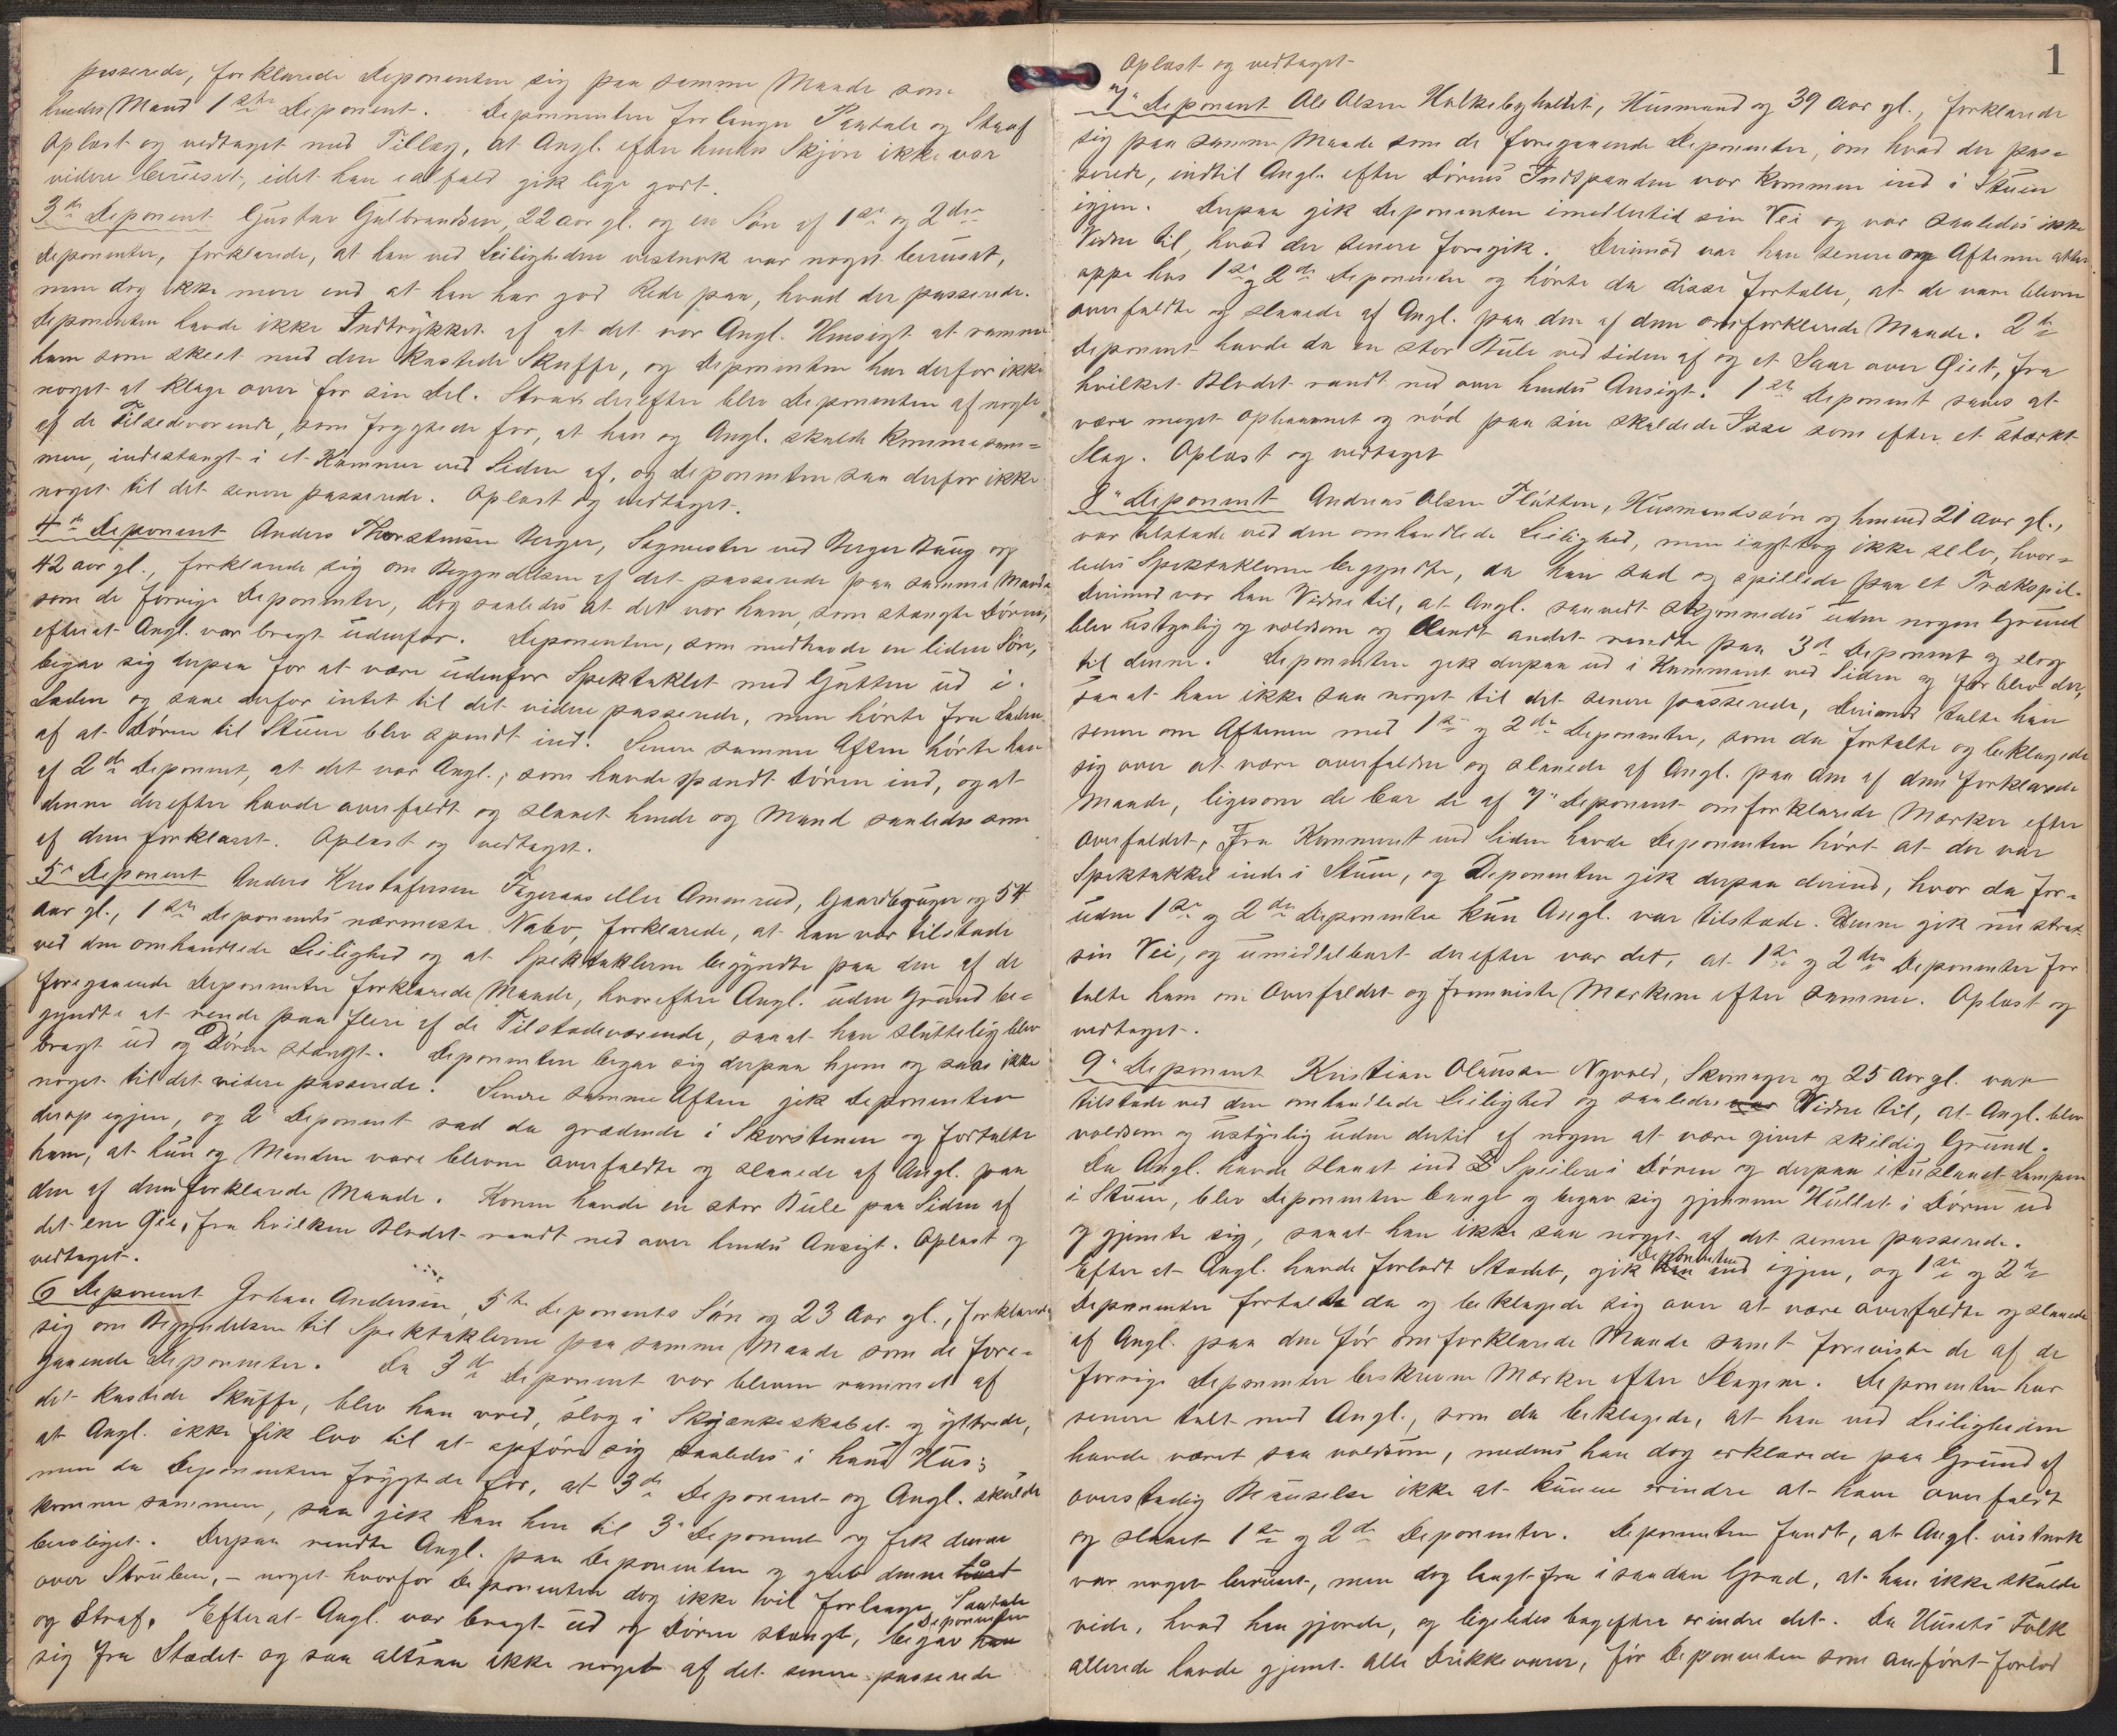 passerede, forklarede Deponenten sig paa samme Maade som
hendes Mand 1ste Deponent. Deponenten forlanger Paatale og Straf
Oplæst og vedtaget med Tillæg, at Angl. efter hendes Skjøn ikke var
videre beruset, idet han ialfald gik lige godt.
3die Deponent Gustav Gulbrandsen, 22 aar gl. og en Søn af 1ste og 2den
Deponenter, forklarede, at han ved Leiligheden vistnok var noget beruset,
men dog ikke mere end at han har god Rede paa, hvad der passerede.
Deponenten havde ikke Indtrykket af at det var Angl. Hensigt at ramme
ham som skeet med den kastede Skuffe, og Deponenten har derfor ikke
noget at klage over for sin Del. Strax derefter blev Deponenten af nogle
af de Tilstedeværende, som frygtede for, at han og Angl. skulde komme sam=
men, indestængt i et Kammer ved Siden af, og Deponenten saa derfor ikke
noget til det senere passerede. Oplæst og vedtaget.
4de Deponent Anders Thorstensen Berger, Sagmester ved Berger Brug og
42 aar gl., forklarede sig om Begyndelsen af det passerede paa samme Maade
som de forrige Deponenter, dog saaledes at det var ham, som stængte Døren,
efterat Angl. var bragt udenfor. Deponenten, som medhavde en liden Søn,
begav sig derpaa for at være udenfor Spektaklet med Gutten ud i
Laden og saae derfor intet til det videre passerede, men hørte fra Laden
af at Døren til Stuen blev spendt ind. Senere samme Aften hørte han
af 2den Deponent, at det var Angl., som havde spændt Døren ind, og at
denne derefter havde overfaldt og slaaet hende og Mand saaledes som
af dem forklaret. Oplæst og vedtaget.
5te Deponent Anders Kristofersen Fageraas eller Amunrud, Gaardbruger og 54
aar gl., 1ste Deponents nærmeste Nabo, forklarede, at han var tilstede
ved den omhandlede Leilighed og at Spektaklerne begyndte paa den af de
foregaaende Deponenter forklarede Maade, hvorefter Angl. uden Grund be=
gyndte at rende paa flere af de Tilstedeværende, saaat han sluttelig blev
bragt ud og Døren stængt. Deponenten begav sig derpaa hjem og saae ikke
noget til det videre passerede. Senere samme Aften gik Deponenten
derop igjen, og 2den Deponent sad da grædende i Skorstenen og fortalte
ham, at hun og Manden vare blevne overfaldte og slaaede af Angl. paa
den af dem forklarede Maade. Konen havde en stor Bule paa Siden af
det ene Øie, fra hvilken Blodet randt ned over hendes Ansigt. Oplæst og
vedtaget.
6 Deponent Johan Andersen, 5te Deponents Søn og 23 Aar gl., forklarede
sig om Begyndelsen til Spektaklerne paa samme Maade som de fore=
gaaende Deponenter. Da 3die Deponent var bleven rammet af
det kastede Skuffe, blev han vred, slog i Skjænkeskabet og yttrede,
at Angl. ikke fik Lov til at opføre sig saaledes i hans Hus;
men da Deponenten frygtede for, at 3die Deponent og Angl. skulde
komme sammen, saa gik han hen til 3die Deponent og fik denne
beroliget. Derpaa rendte Angl. paa Deponenten og greb denne haardt
over Struben, – noget hvorfor Deponenten dog ikke vil forlange Paatale
og Straf. Efterat Angl. var bragt ud og Døren stængt, begav han Deponenten
sig fra Stedet og saa altsaa ikke noget af det senere passerede
1
Oplæst og vedtaget
7de Deponent Ole Olsen Holkebyhaldet, Husmand og 39 Aar gl., forklarede
sig paa samme Maade som de foregaaende Deponenter, om hvad der pas=
serede, indtil Angl. efter Dørens Indspænden var kommen ind i Stuen
igjen. Derpaa gik Deponenten imidlertid sin Vei og var saaledes ikke
Vidne til, hvad der senere foregik. Derimod var han senere om Aftenen atter
oppe hos 1ste og 2den Deponenter og hørte da disse fortælle, at de vare blevne
overfaldte og slaaede af Angl. paa den af dem omforklarede Maade. 2den
Deponent havde da en stor Bule ved Siden af og et Saar over Øiet, fra
hvilket Blodet randt ned over hendes Ansigt. 1ste Deponent saaes at
være meget ophovnet og rød paa sin skaldede Isse som efter et stærkt
Slag. Oplæst og vedtaget
8de Deponent Andreas Olsen Fløtten, Husmandssøn og henved 21 aar gl.,
var tilstede ved den omhandlede Leilighed, men iagttog ikke selv, hvor=
ledes Spektaklerne begyndte, da han sad og spillede paa et Trækspil.
Derimod var han Vidne til, at Angl. saavidt skjønnedes uden nogen Grund
blev ustyrlig og voldsom og blandt andet rendte paa 3die Deponent og slog
til denne. Deponenten gik derpaa ud i Kammeret ved Siden og forblev der,
saaat han ikke saa noget til det senere passerede, Derimod talte han
senere om Aftenen med 1ste og 2den Deponenter, som da fortalte og beklagede
sig over at være overfaldne og slaaede af Angl. paa den af dem forklarede
Maade, ligesom de bar de af 7de Deponent omforklarede Mærker efter
Overfaldet, Fra Kammeret ved Siden havde Deponenten hørt at der var
Spektakkel inde i Stuen, og Deponenten gik derpaa derind, hvor da for=
uden 1ste og 2den Deponenter kun Angl. var tilstede. Denne gik nu strax
sin Vei, og umiddelbart derefter var det, at 1ste og 2den Deponenter for
talte ham om Overfaldet og fremviste Mærkerne efter samme. Oplæst og
vedtaget.
9de Deponent Kristian Olaussen Nyvold, Skomager og 25 Aar gl. var
tilstede ved den omhandlede Leilighed og saaledes var Vidne til, at Angl. blev
voldsom og ustyrlig uden dertil af nogen at være givet skildig Grund.
Da Angl. havde slaaet ind 2 Speile i Døren og derpaa ituslaaet Lampen
i Stuen, blev Deponenten bange og begav sig gjennem Hullet i Døren ud
og gjemte sig, saaat han ikke saa noget af det senere passerede.
Efter at Angl. havde forladt Stedet, gik han Deponenten ind igjen, og 1ste og 2den
Deponenter fortalte da og beklagede sig over at være overfaldte og slaaede
af Angl. paa den før omforklarede Maade samt foreviste de af de
forrige Deponenter beskrevne Mærker efter Slagene. Deponenten har
senere talt med Angl., som da beklagede, at han ved Leiligheden
havde været saa voldsom, medens han dog erklærede paa Grund af
overstadig Beruselse ikke at kunne erindre at have overfaldt
og slaaet 1ste og 2den Deponenter. Deponenten fandt, at Angl. vistnok
var noget beruset, men dog langt fra i saadan Grad, at han ikke skulde
vide, hvad han gjorde, og ligeledes bagefter erindre det. Da Husets Folk
allerede havde gjemt alle Drikkevarer, før Deponenten som anført forlod